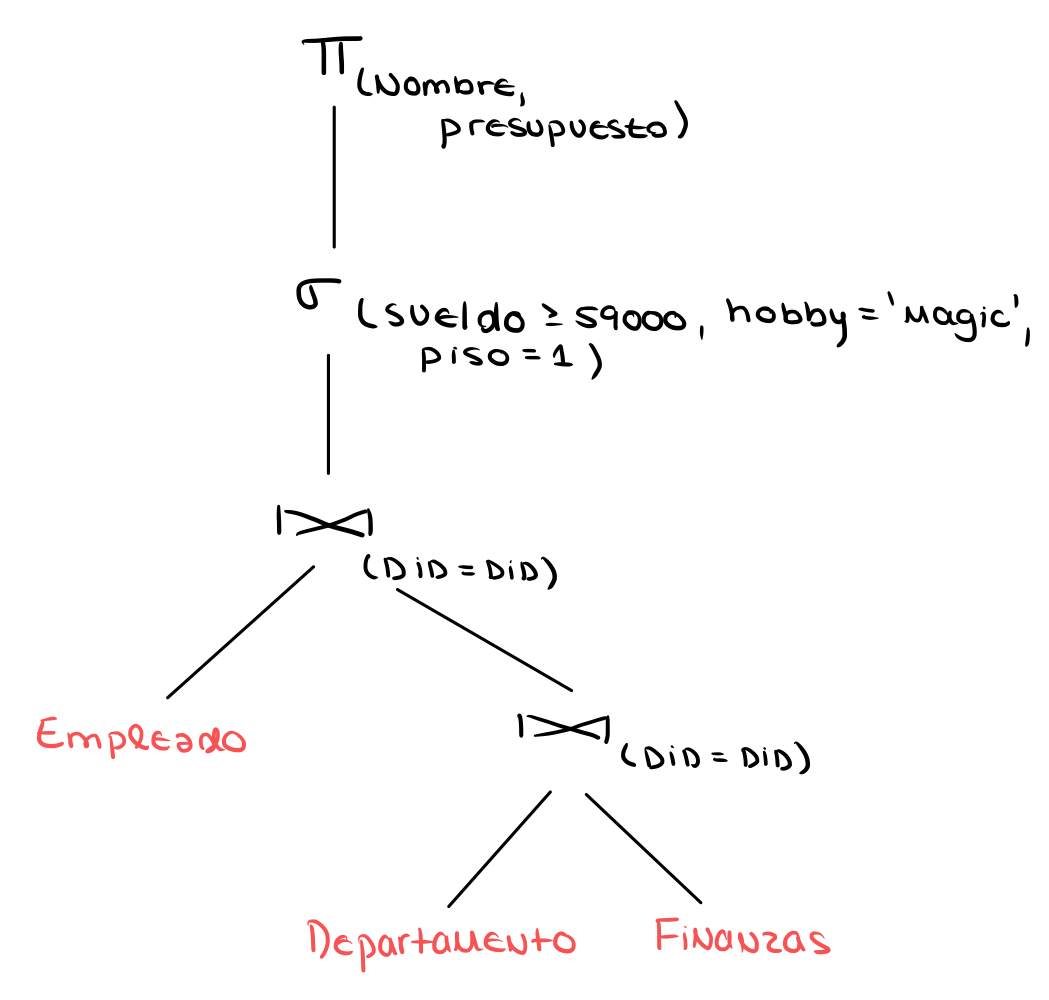 π (Nombre,
presupuesto)
σ (sueldo ≥ 59000, hobby = 'Magic',
piso = 1)
⋈ (DiD = DiD)
Empleado
⋈ (DiD = DiD)
Departamento Finanzas